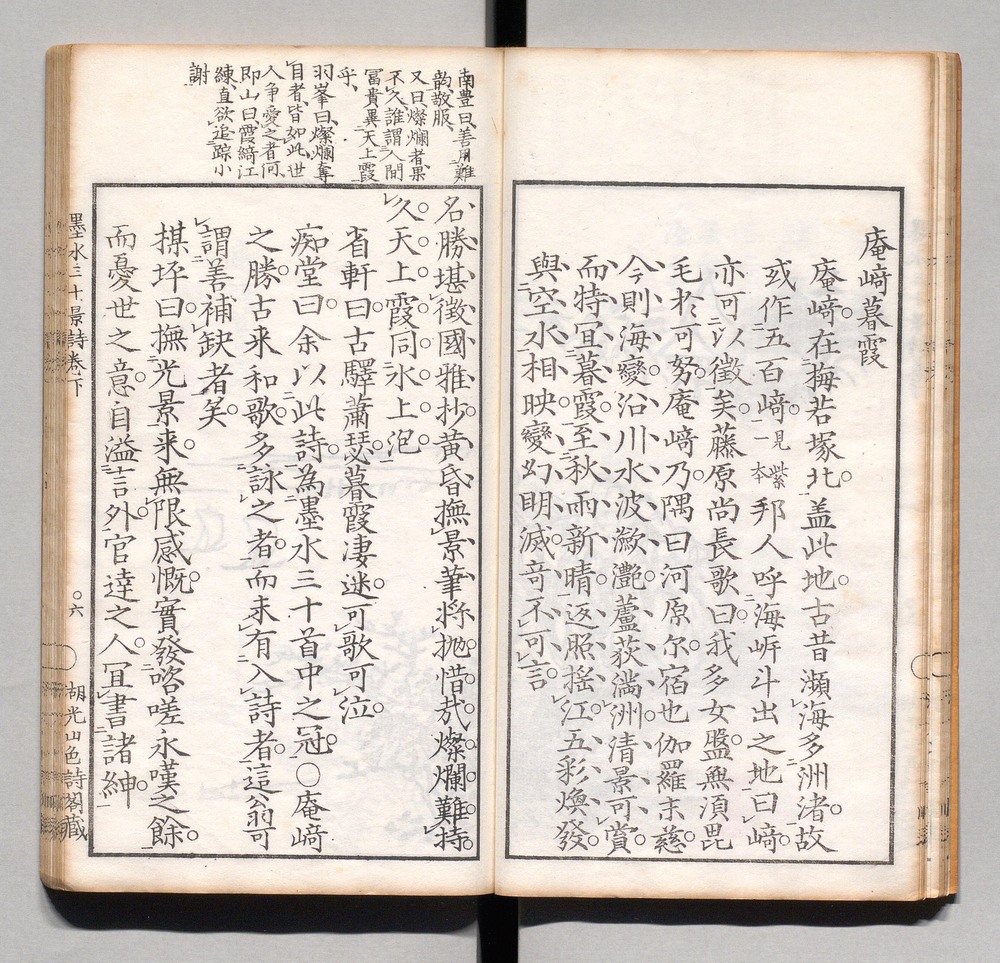 庵﨑暮霞
庵﨑在梅若塚北盖此地古昔瀕海多洲渚故
或作五百﨑見紫一本邦人呼海岍斗出之地曰﨑
亦可以徴矣藤原尚長歌曰我多女盤無須毘
毛於可努庵﨑乃隅田河原尔宿也伽羅末慈
今則海變沿川水波瀲灔蘆荻満洲清景可賞
而特冝暮霞至秋雨新晴返照揺江五彩煥發
與空水相映變幻明滅竒不可言
名勝堪徴國雅抄黄昏撫景筆将抛惜哉燦爛難持
久天上霞同氷上泡
省軒曰古驛蕭瑟暮霞凄迷可歌可泣
痴堂曰余以此詩為墨水三十首中之冠○庵﨑
之勝古来和歌多詠之者而未有入詩者這翁可
謂善補缺者矣
棋坪曰撫光景来無限感慨實發咨嗟永嘆之餘
而憂世之意自溢言外官達之人冝書諸紳
南豊曰善用難
韵敬服
又曰燦爛者果
不久誰謂人間
冨貴異天上霞
乎
羽峯曰燦爛奪
目者皆如此世
人争愛之者何
即山曰霞綺江
練直欲追踪小
謝
墨水三十景詩巻下
○六
胡光山色詩閣藏